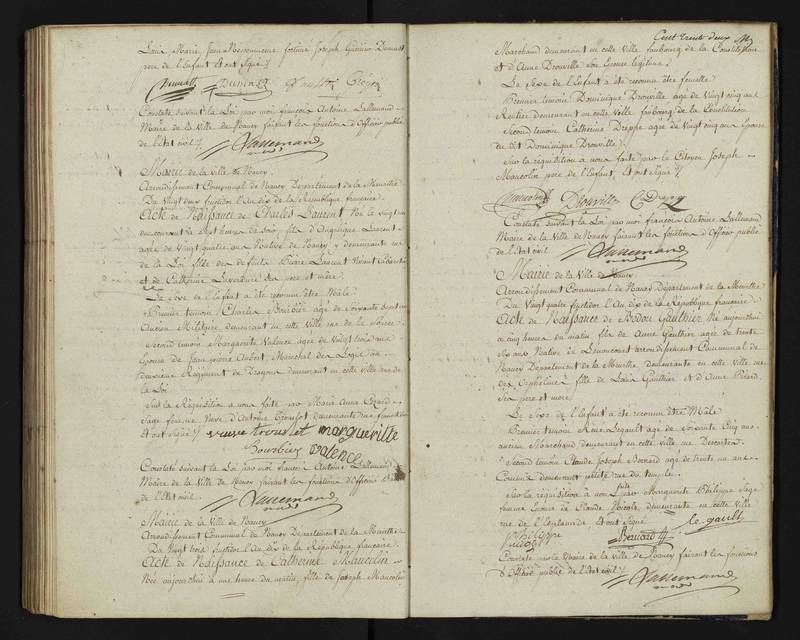 Louis Marie, Jean Népomucene fortuné Joseph Guerrier Dumast
pere de l'Enfant et ont signé
Constaté suivant la Loi par moi françois Antoine Lallemand
Maire de la Ville de Nancy faisant les fonctions d'Officier public
de l'Etat civil
Lallemand
Mairie de la Ville de Nancy
Arrondissement Communal de Nancy Département de la Meurthe
Du Vingt deux fructidor l'An dix de la République française
Acte de Naissance de Charles Laurent Né le vingt un
du courant à sept heures du soir fils d'Angélique Laurent
agée de vingt quatre ans Native de Nancy y demeurante rue
de la Loi fille des défunts Pierre Laurent vivant
et de Catherine ses pere et mere
Le Sexe de l'Enfant a été reconnu être Mâle
Premier témoin Charles Bourbier agé de soixante sept ans
Ancien Militaire demeurant en cette Ville rue de la
Second témoin Marguerite Valence agée de vingt trois ans
Epouse de Jean pierre Aubert Maréchal des Logis au
deuxieme Régiment de Dragons demeurant en cette Ville rue de
la Loi
Sur la Réquisition à nous faite par Marie Anne
Sage femme Veuve d'Antoine Trouslet demeurante rue
et ont signé veuve trouslet margueritte
Bourbier valence
Constaté suivant la Loi par moi françois Antoine Lallemand
Maire de la Ville de Nancy faisant les fonctions d'Officier public
de l'Etat civil
Lallemand
Mairie de la Ville de Nancy
Arrondissement Communal de Nancy Département de la Meurthe
Du Vingt trois fructidor l'An dix de la République française
Acte de Naissance de Catherine Maucolin
Née aujourd'hui à une heure du matin, fille de Joseph Maucolin
Cent trente deux
Marchand demeurant en cette Ville faubourg de la Constitution
et d'Anne Drouville son Epouse légitime
Le Sexe de l'Enfant a été reconnu être femelle
Premier témoin Dominique Drouville agé de vingt cinq ans
Rentier demeurant en cette Ville faubourg de la Constitution
Second témoin Catherine agée de Vingt cinq ans Epouse
du dit Dominique Drouville
Sur la réquisition à nous faite par le Citoyen Joseph
Maucolin pere de l'Enfant, et ont signé
Maucolin Drouville
Constaté suivant la Loi par moi françois Antoine Lallemand
Maire de la Ville de Nancy faisant les fonctions d'Officier public
de l'Etat civil
Lallemand
Mairie de la Ville de Nancy
Arrondissement Communal de Nancy Département de la Meurthe
Du Vingt quatre fructidor l'An dix de la République française
Acte de Naissance de Gauthier, Né aujourd'hui
à cinq heures du matin fils de Anne Gauthier agée de trente
six ans Native de arrondissement Communal de
Nancy Département de la Meurthe, demeurante en cette Ville rue
des Orphelins, fille de Louis Gauthier et d'Anne
ses pere et mere
Le Sexe de l'Enfant a été reconnu être Mâle
Premier témoin Legault agé de soixante cinq ans
ancien Marchand demeurant en cette ville rue Descartes
Second témoin Claude Joseph Bernard agé de trente un ans
demeurant petite rue du temple
Sur la réquisition à nous faite par Marguerite Philippe Sage
femme Epouse de Claude Nicolas, demeurante en cette Ville
rue de l'Esplanade, et ont signé le gault
Philippe
Bernard
Constaté par le Maire de la Ville de Nancy faisant les fonctions
d'Officier public de l'Etat civil
Lallemand